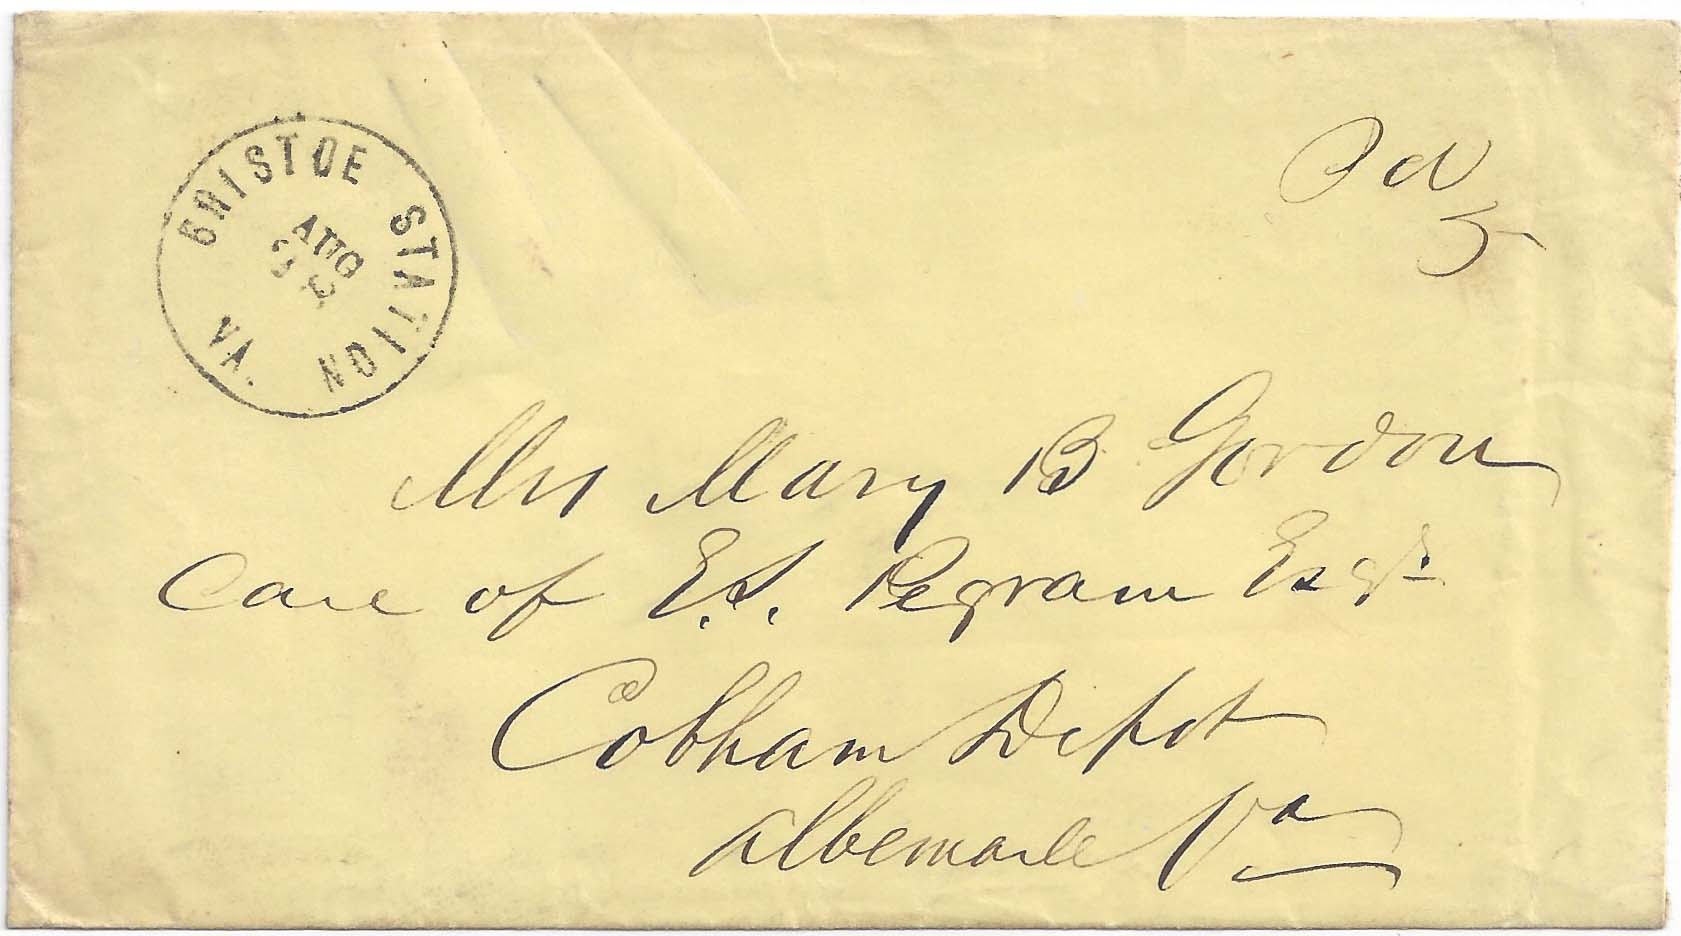 BRISTOE STATION VA.
AUG
Pd
5
Mrs Mary B Gordon
Care of E.S. Pegram Esqr
Cobham Depot
Albemarle Va